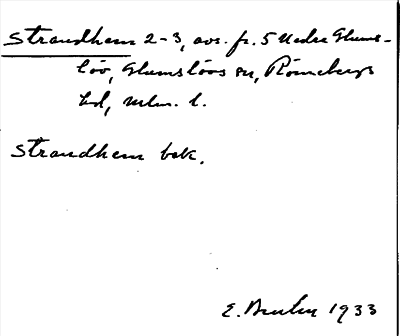 Strandhem 2-3, avs. fr. 5 Nedre Glums-
löv, Glumslövs sn, Rönnebergs
hd, Mlm. l.
Strandhem bok.
E. 1933